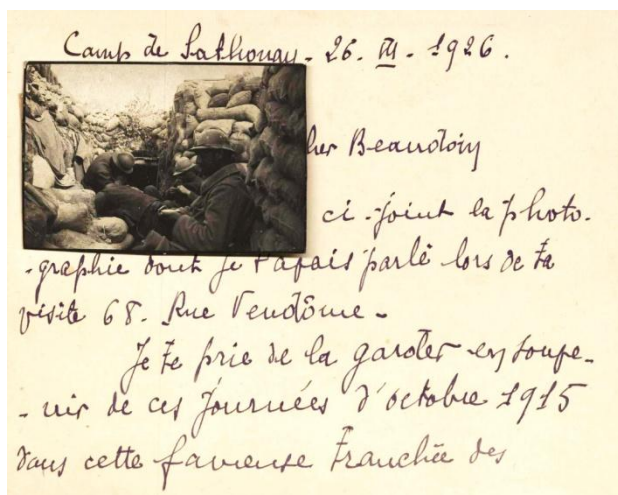 Camp de Sathonay - 26. III - 1926.
her Beaudoin
ci-joint la photo-
-graphie dont je t'avais parlé lors de ta
visite 68. Rue Vendôme -
Je te prie de la garder en souve-
- nir de ces journées d'octobre 1915
dans cette fameuse tranchée des